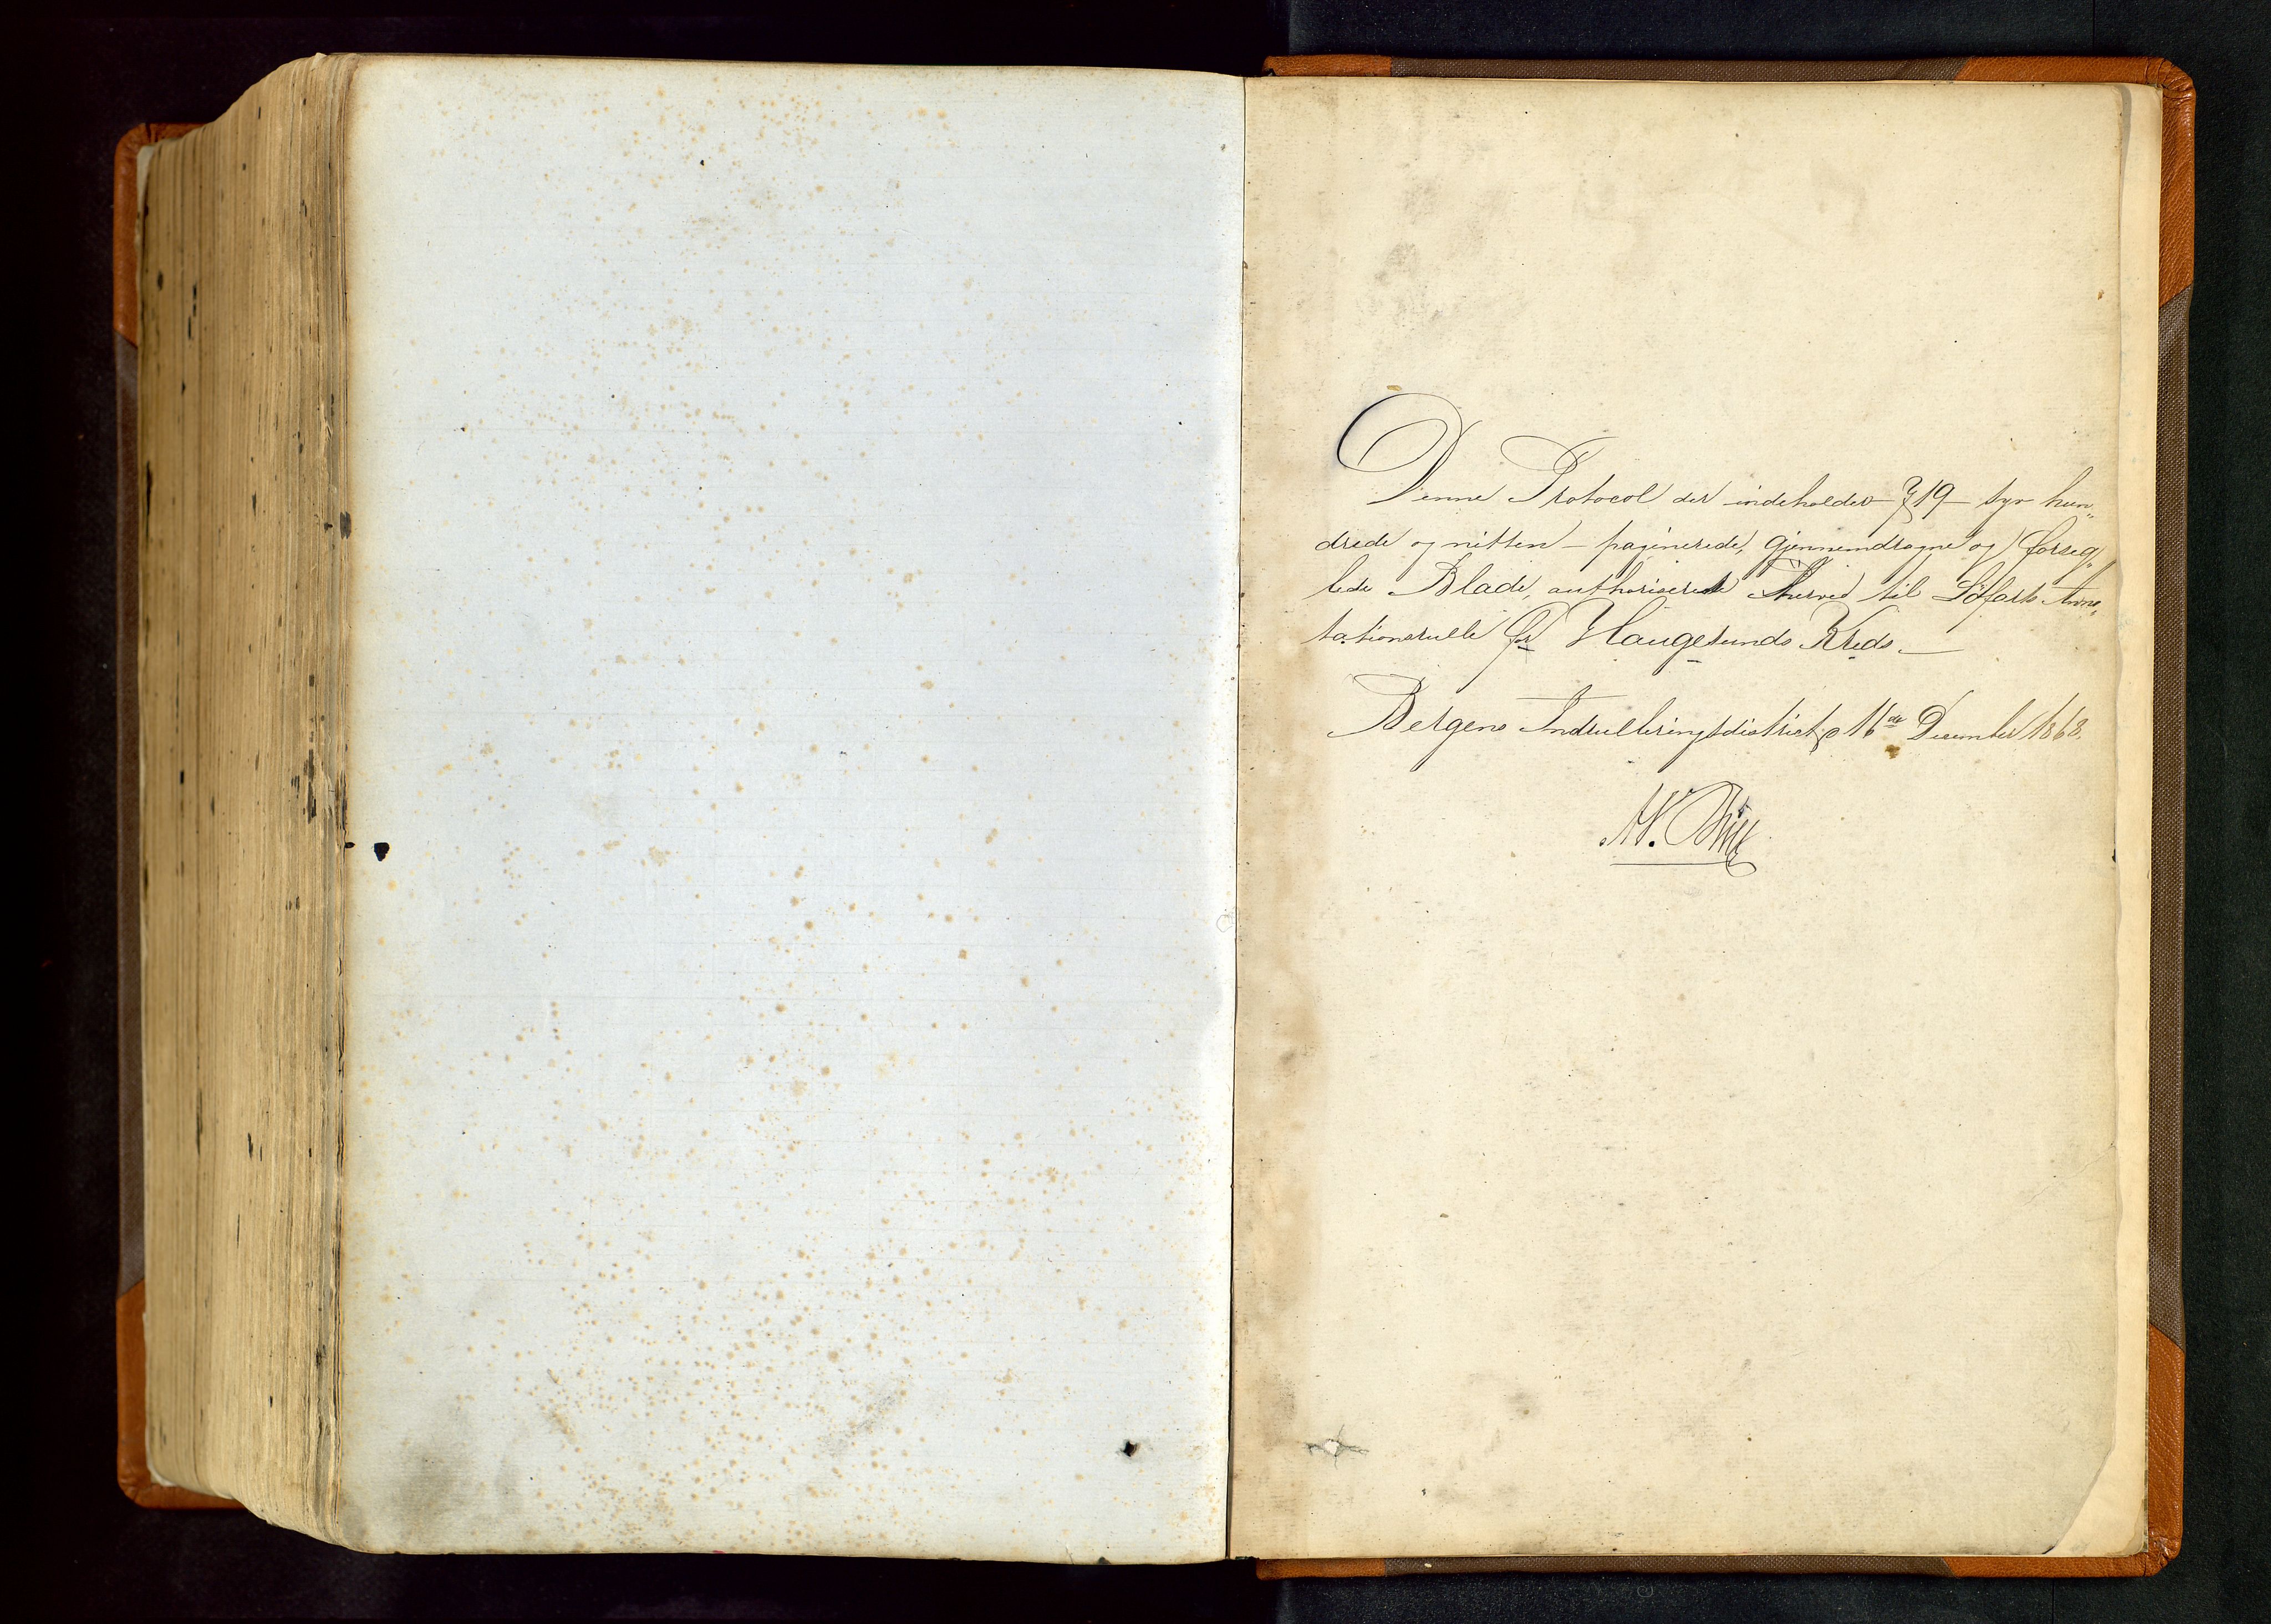 Denne Protocol der indeholder – 719 – syv hun„
drede og nitten – paginerede, gjennemdragne og forseg„
lede Blade, authoriseres herved til Söfarts Anno„
tationsrulle for Haugesunds Kreds. –
Bergens Indrulleringsdistrict 16de December 1868.